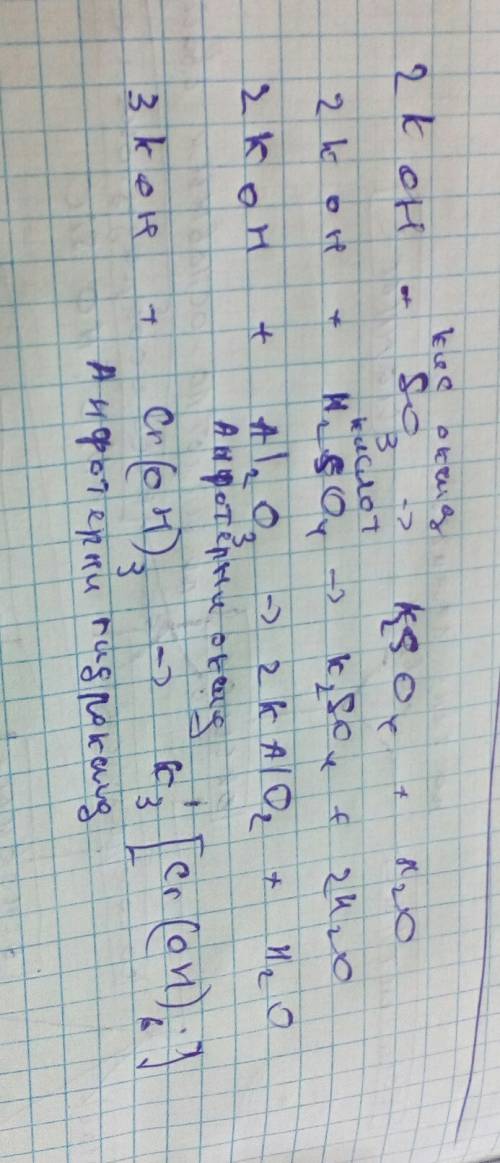 кис оксид
2 KOH + SO3 -> K2SO4 + H2O
кислот
2 KOH + H2SO4 -> K2SO4 + 2H2O
2 KOH + Al2O3 -> 2 KAlO2 + H2O
Анфотерни оксид
3 KOH + Cr(OH)3 -> K3[Cr(OH)6]
Анфотерни гидроксид